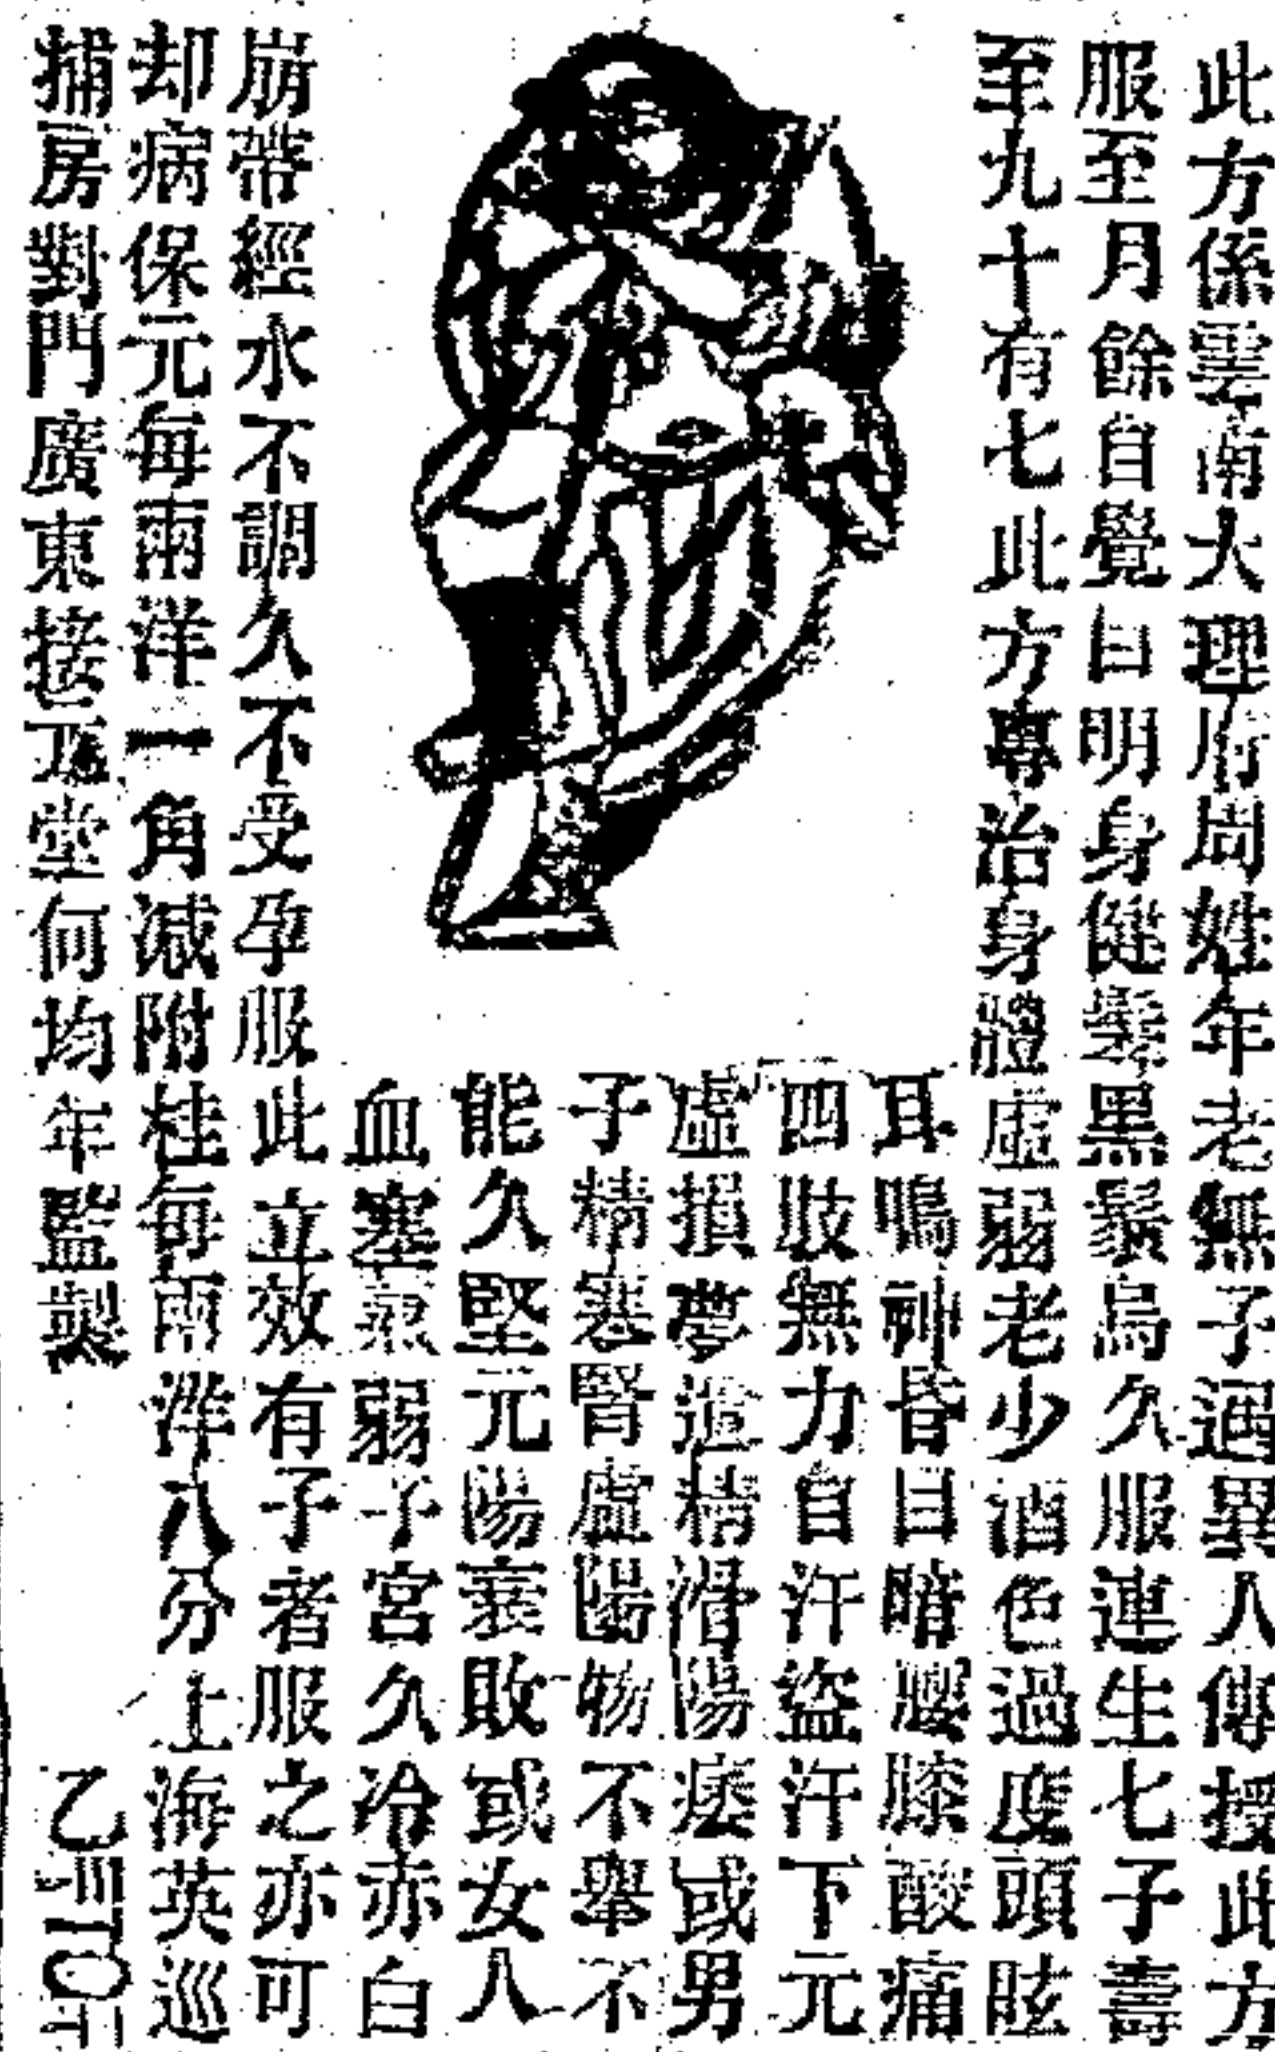 此方係雲南大理府周姓年老無子遇異人傳授此方
服至月餘自覺目明身健髮黑鬚烏久服連生七子壽
至九十有七此方專治身體虛弱老少酒色過度頭眩
耳鳴神昏目暗腰膝酸痛
四肢無力自汗盜汗下元
虛損夢遺精滑陽痿或男
子精寒腎虛陽物不舉不
能久堅元陽衰敗或女人
血塞氣弱子宮久冷赤白
崩帶經水不調久不受孕服此立效有子者服之亦可
却病保元每兩洋一角減附桂每兩洋八分上海英巡
捕房對門廣東接玉堂何均年監製
乙